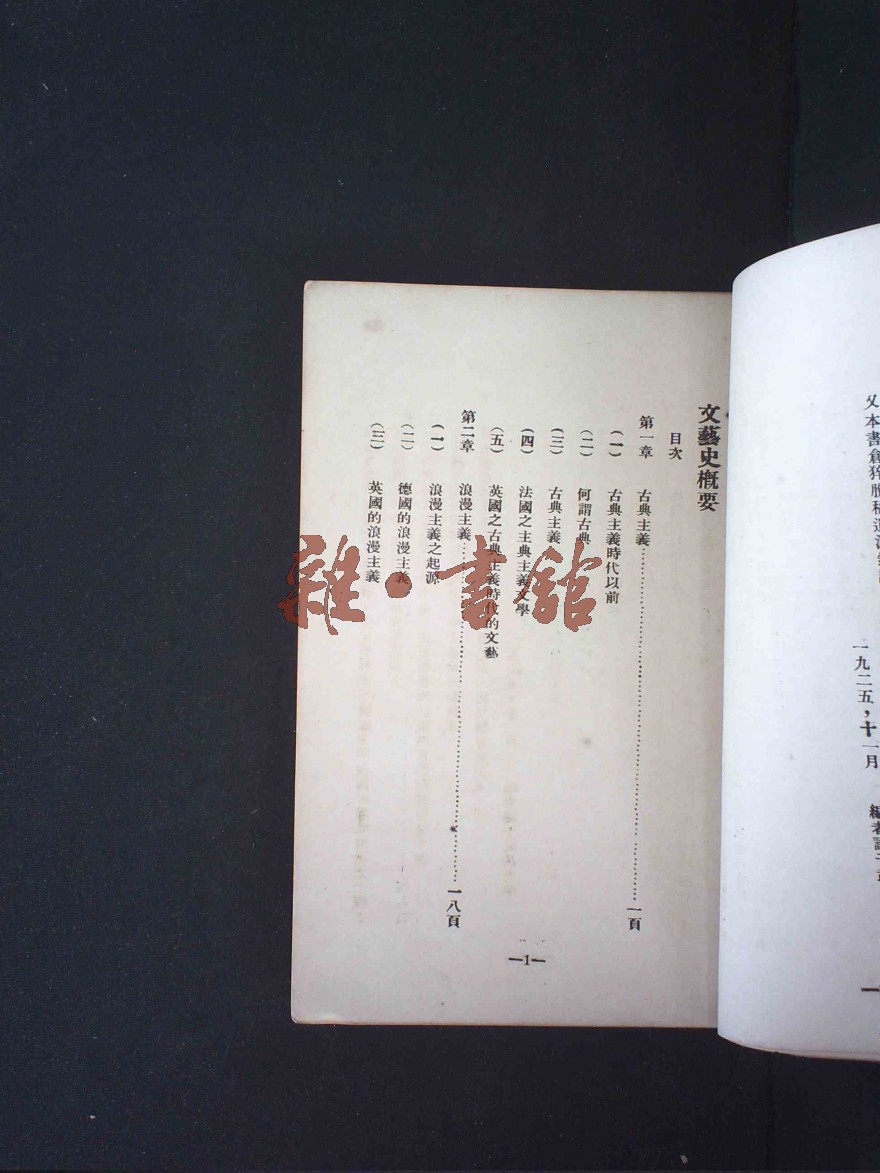 又本書倉猝脫稿
一九二五，十一月
編者
文藝史概要
目次
第一章 古典主義…………一頁
（一） 古典主義時代以前
（二） 何謂古典
（三） 古典主義
（四） 法國之主典主義文學
（五） 英國之古典主義時代的文藝
第二章 浪漫主義…………一八頁
（一） 浪漫主義之起源
（二） 德國的浪漫主義
（三） 英國的浪漫主義
—1—
雜·書館